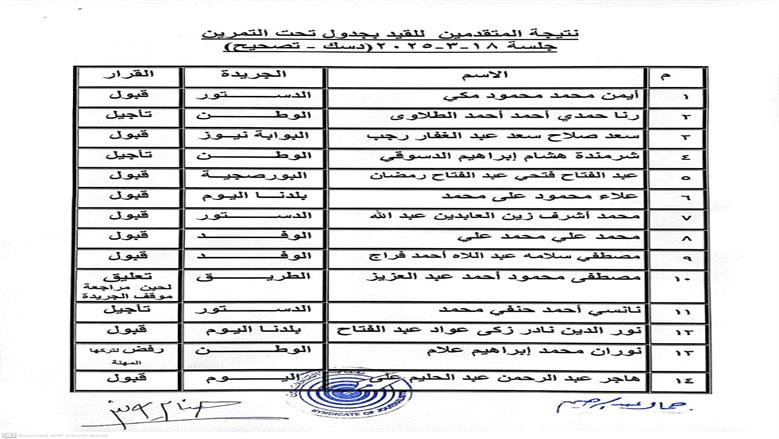 نتيجة المتقدمين للقيد بجدول تحت التمرين
جلسة ١٨-٣-٢٠٢٥ (دسك - تصحيح)
م الاسم الجريدة القرار
١ أيمن محمد محمود مكي الدستور قبول
٢ رنا حمدي أحمد أحمد الطلاوى الوطن تأجيل
٣ سعد صلاح سعد عبد الغفار رجب البوابة نيوز قبول
٤ شرمندة هشام إبراهيم الدسوقي الوطن تأجيل
٥ عبد الفتاح فتحي عبد الفتاح رمضان البورصجية قبول
٦ علاء محمود على محمد بلدنا اليوم قبول
٧ محمد أشرف زين العابدين عبد الله الدستور قبول
٨ محمد علي محمد علي الوفد قبول
٩ مصطفي سلامه عبد اللاه أحمد فراج الوفد قبول
١٠ مصطفى محمود أحمد عبد العزيز الطريق تعليق
لحين مراجعة
موقف الجريدة
١١ نانسي أحمد حنفي محمد الدستور تأجيل
١٢ نور الدين نادر زكى عواد عبد الفتاح بلدنا اليوم قبول
١٣ نوران محمد إبراهيم علام الوطن رفض لتركها
المهنة
١٤ هاجر عبد الرحمن عبد الحليم على اليوم قبول
SYNDICATE OF